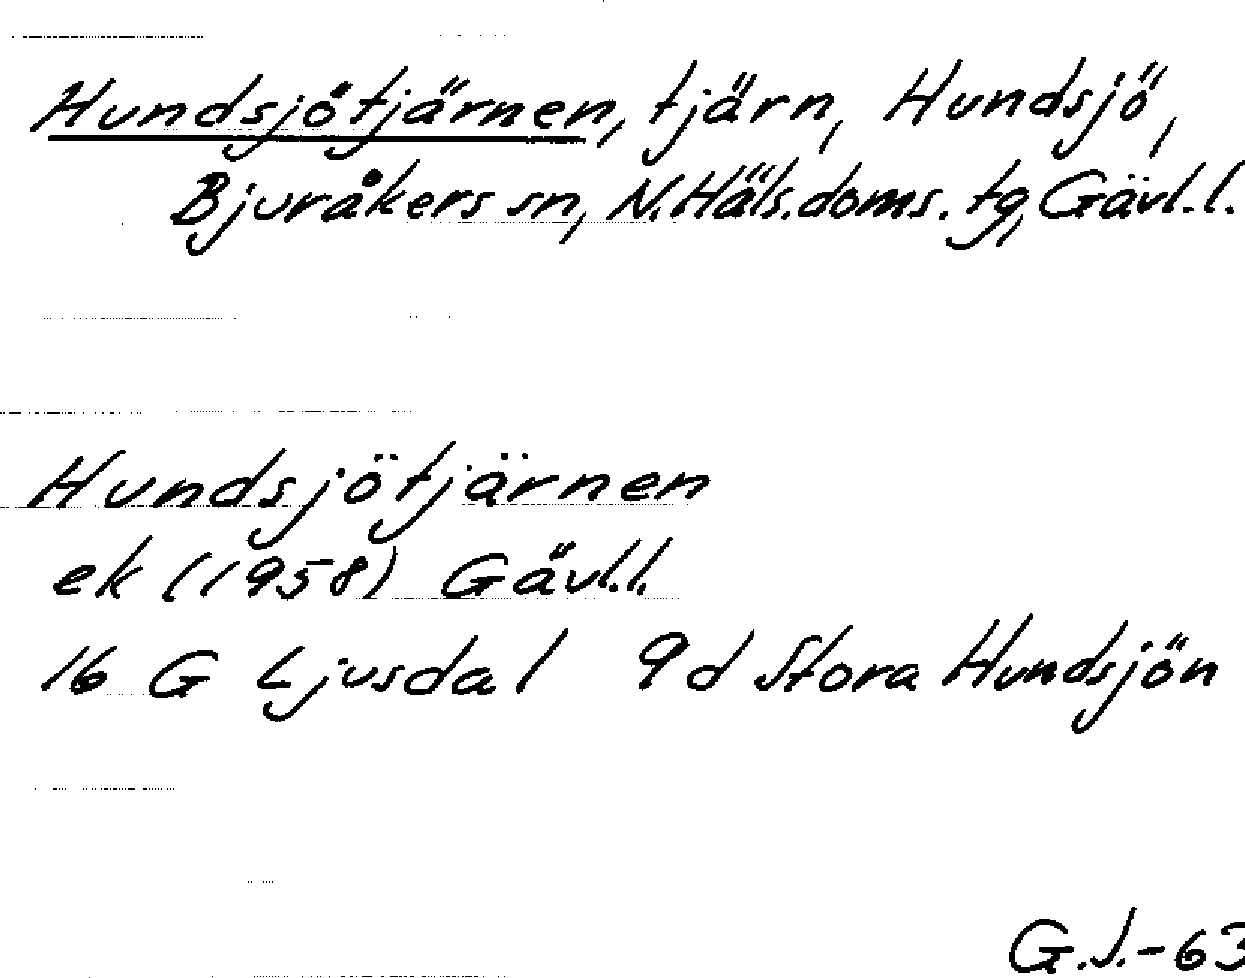 Hundsjötjärnen, tjärn, Hundsjö,
Bjuråkers sn, N. Häls. doms. tg, Gävl. l.
Hundsjötjärnen
ek (1958) Gävl. l.
16 G Ljusdal 9d Stora Hundsjön
G.J.-63